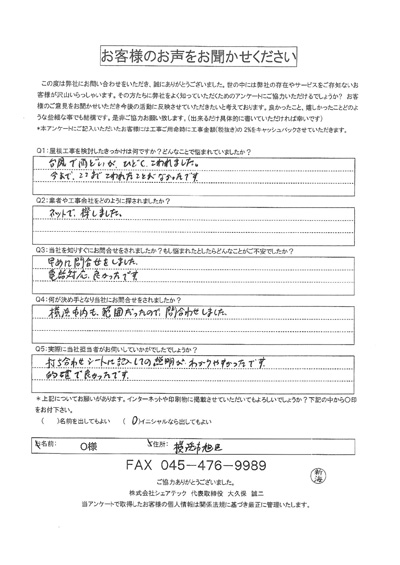 お客様のお声をお聞かせください
この度は弊社にお問い合わせをいただき、誠にありがとうございました。世の中には弊社の存在やサービスをご存知ないお
客様が沢山いらっしゃいます。その方たちに弊社をよく知っていただくためのアンケートにご協力いただけるでしょうか? お客
様のご意見をお聞かせいただき今後の活動に反映させていただきたいと考えております。良かったこと、嬉しかったことどのよ
うな些細な事でも結構です。是非ご協力お願い致します。(出来るだけ具体的に書いていただければ幸いです)
*本アンケートにご記入いただいたお客様には工事ご用命時に工事金額(税抜き)の2%をキャッシュバックさせていただきます。
Q1:屋根工事を検討したきっかけは何ですか?どんなことで悩まれていましたか?
台風で雨どいが、ひどく、こわれました。
今まで、ここまでこわれたことがなかったです
Q2:業者や工事会社をどのように探されましたか?
ネットで、探しました。
Q3:当社を知りすぐにお問合せをされましたか?もし悩まれたとしたらどんなことがご不安でしたか?
早めに問合せをしました。
電話対応、良かったです
Q4:何が決め手となり当社にお問合せをされましたか?
横浜市内も、範囲だったので、問合わせしました。
Q5:実際に当社担当者がお伺いしていかがでしたでしょうか?
打ち合わせシートに記入しての説明がわかりやすかったです。
的確で良かったです。
*上記についてお願いがあります。インターネットや印刷物に掲載させていただいてもよろしいでしょうか?下記の中から○印
をお付下さい。
( )名前を出してもよい (O)イニシャルなら出してもよい
お名前: O様 ご住所: 横浜市旭区
FAX 045-476-9989
新海
ご協力ありがとうございました。
株式会社シェアテック 代表取締役 大久保 誠二
当アンケートで取得したお客様の個人情報は関係法規に基づき厳正に管理いたします。